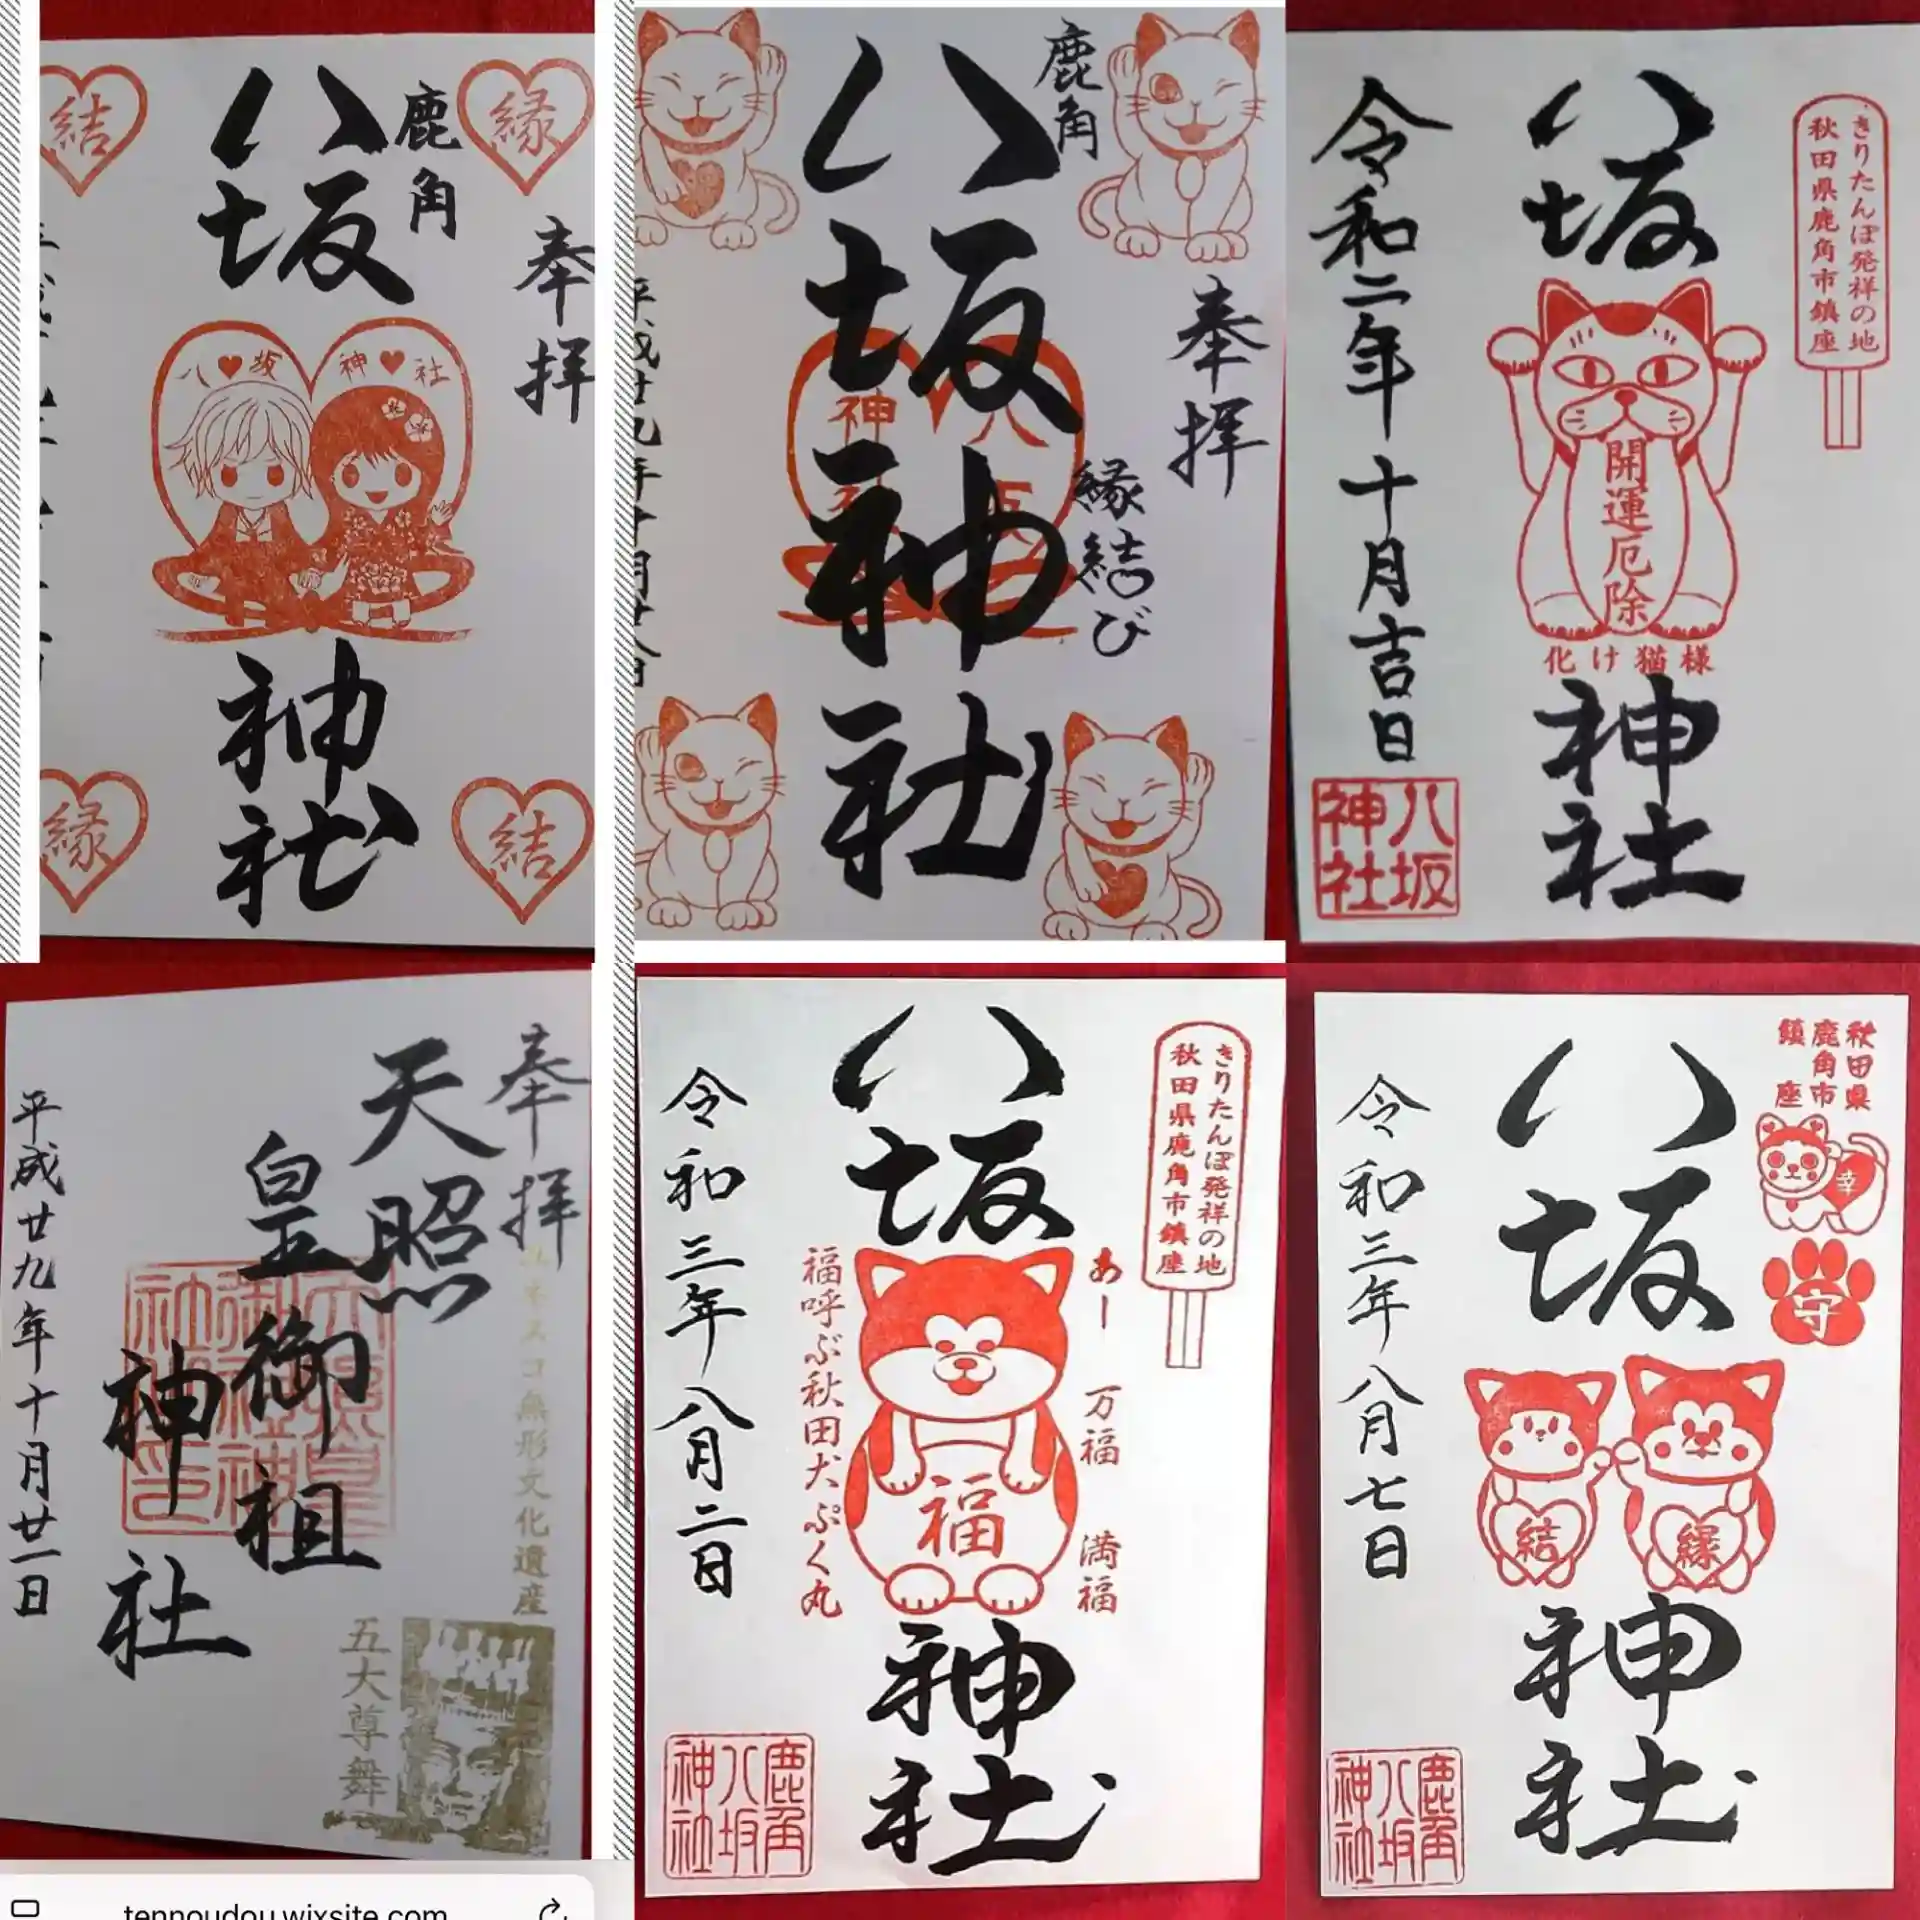 結
縁
八坂神社
鹿角
奉拝
八♥坂
神♥社
縁
結
鹿角
八坂神社
奉拝
縁結び
平成廿九年十月廿八日
八坂神社
きりたんぽ発祥の地
秋田県鹿角市鎮座
令和二年十月吉日
開運厄除
化け猫様
八坂神社
奉拝
天照皇御祖神社
平成廿九年十月廿一日
ユネスコ無形文化遺産
五大尊舞
八坂神社
きりたんぽ発祥の地
秋田県鹿角市鎮座
令和三年八月二日
あー
万福
満福
福呼ぶ秋田犬ぷく丸
福
鹿角八坂神社
八坂神社
秋田県
鹿角市
鎮座
幸
守
令和三年八月七日
結
縁
鹿角八坂神社
tennoudou.wixsite.com